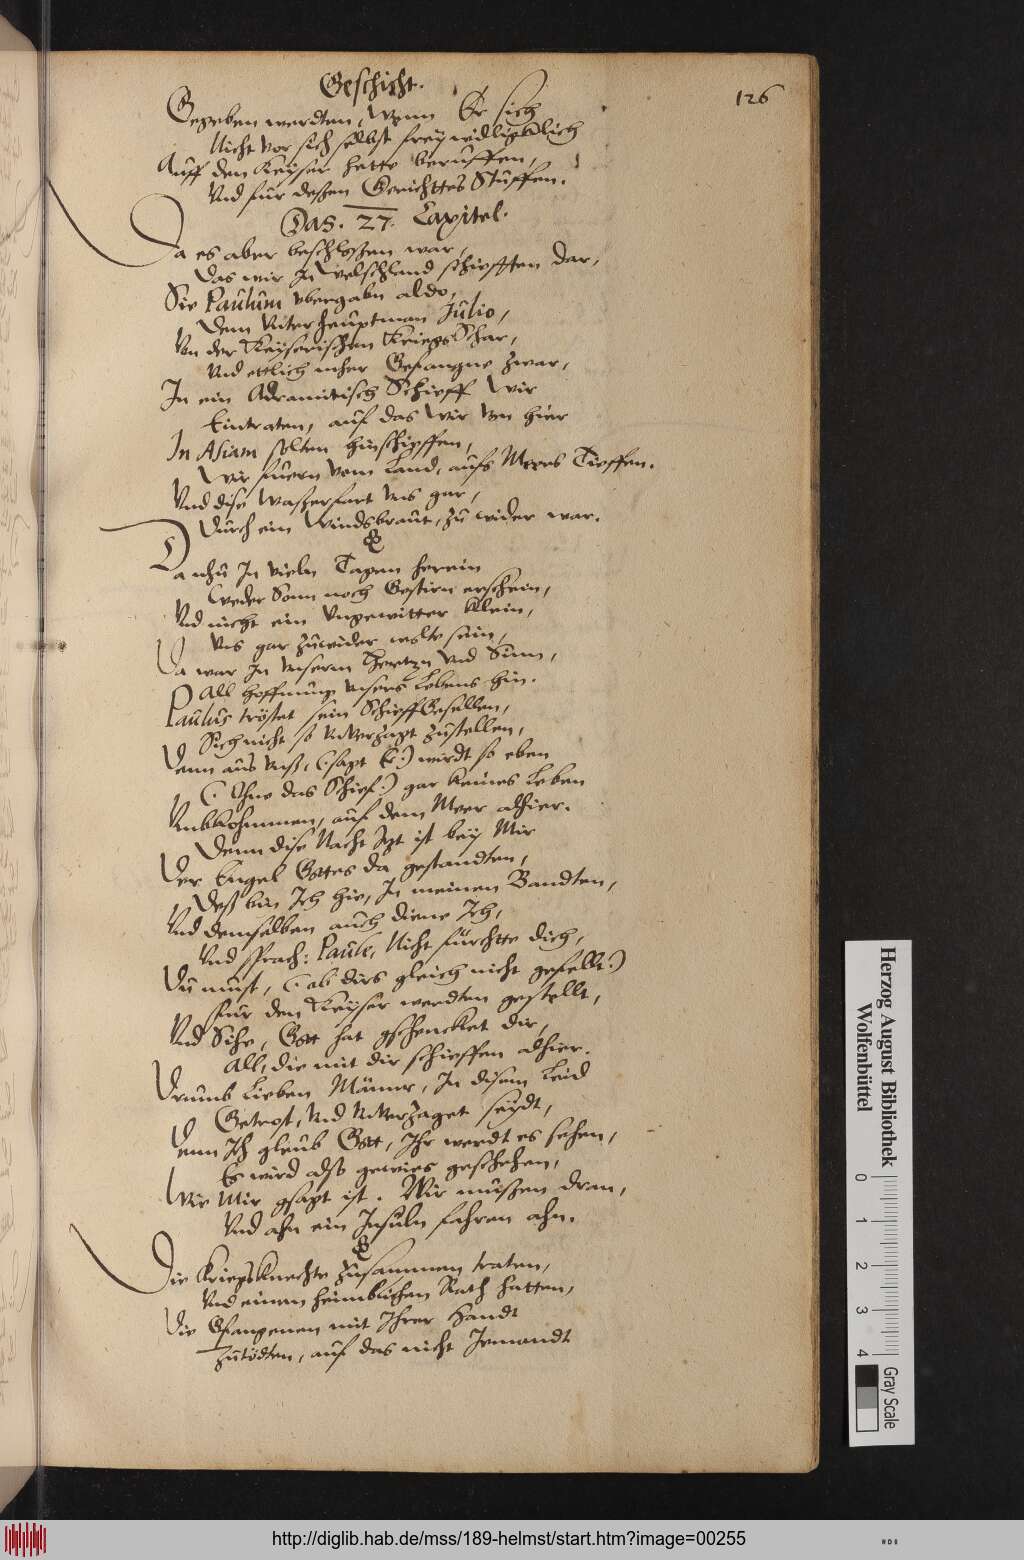 Geschicht.
126
Gegeben werdten, Wenn Er sich
Nicht vor sich selbst freywilligklich
Auff den Keyser hette beruffen,
Vnd für deßen Gerichttes Stuffen.
Das. 27. Capitel.
Da es aber beschloßen war,
Das wir In Welschland schiefften dar,
Sie Paulum vbergabn aldo,
Dem Vnterheuptman Julio,
Von der Keyserischen Kriegs Schar,
Vnd ettlich mher Gefangne zwar,
In ein Adramitisch Schieff Wir
Eintraten, auf das Wir Von hier
In Asiam solten hinschieffen,
Wir fuern Vom Land, aufs Meers Tieffen.
Vnd dise Waßerfart Vns gar,
Durch ein Windsbraut, zu wider war.
Da nhu In vieln Tagen herein
Weder Sonn noch Gestirn erschein,
Vnd nicht ein Vngewitter klein,
Vns gar zuwider wolte sein,
Da war In Vnserm Hertzn Vnd Sinn,
All hoffnung Vnsers Lebens hin.
Paulus tröstet sein Schieff Gesellen,
Sich nicht so VnVerzagt zustellen,
Denn aus Vnß, (sagt E:) wirdt so eben
(Ohne das Schief:) gar keines Leben
Vmbkohmmen, auf dem Meer alhier.
Denn dise Nacht Izt ist bey Mir
Der Engel Gottes da gestandten,
Deß bin Ich hie, In meinen Bandten,
Vnd demselben auch diene Ich,
Vnd sprach: Paule, Nicht fürchtte dich,
Du must, (ob dirs gleich nicht gefellt:)
Für den Keyser werdten gestellt,
Vnd Sihe, Gott hat gschencket dir,
All, die mit dir schieffen alhier.
Drumb Lieben Männer, In disem Leid
Getrost, Vnd VnVerzaget seydt,
Denn Ich gleub Gott, Ihr werdt es sehen,
Es wird also gewies geschehen,
Wie Mir gsagt ist. Wir müßen dran,
Vnd ahn ein Insuln fahren ahn.
Die Kriegsknechte zusammen traten,
Vnd einen heimblichen Rath hatten,
Die Gfangenen mit Ihrer Handt
Zutödten, auf das nicht Iemandt
Herzog August Bibliothek
Wolfenbüttel
0 1 2 3 4
Gray Scale
http://diglib.hab.de/mss/189-helmst/start.htm?image=00255